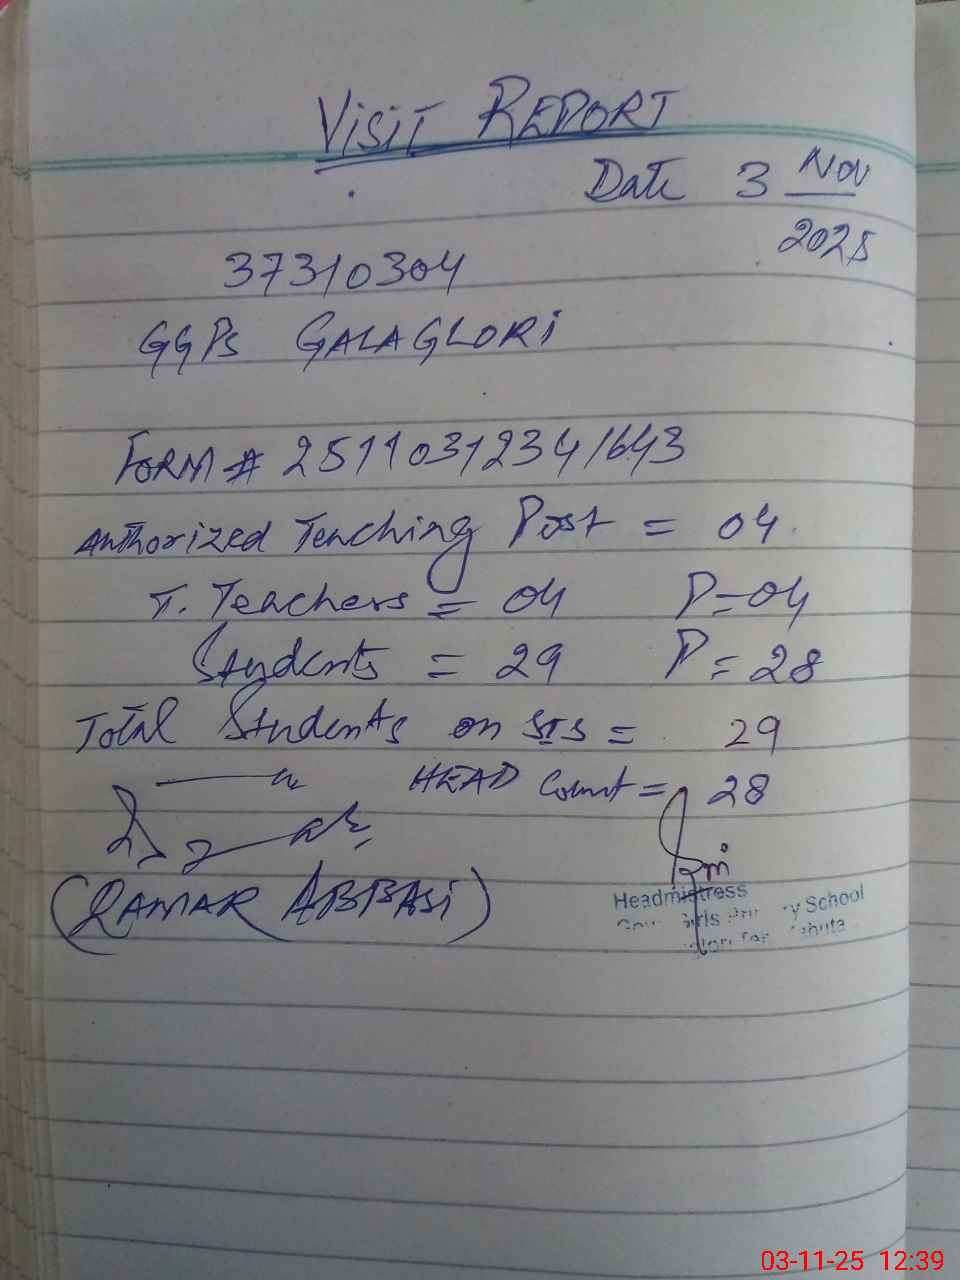 VISIT REPORT
Date 3 Nov
2025
37310304
GGPS GALAGLORI
FORM # 25110312341643
Authorized Teaching Post = 04
T. Teachers = 04 P=04
Students = 29 P=28
Total Students on SIS = 29
HEAD Count = 28
(QAMAR ABBASI)
Headmistress
Girls School
03-11-25 12:39